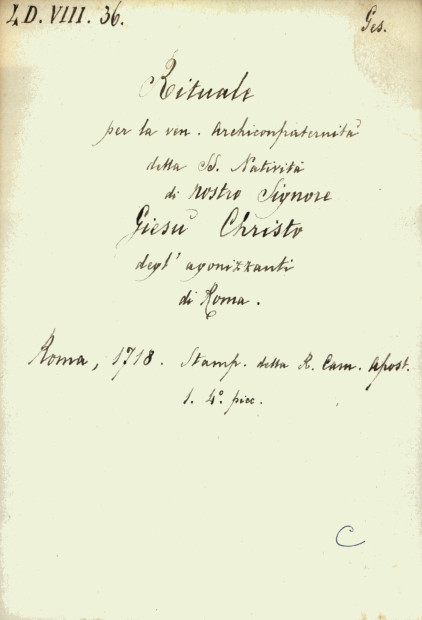 L D. VIII. 36.
Ges.
Rituale
per la ven. Archiconfraternità
della SS. Natività
di nostro Signore
Giesù Christo
degl' agonizzanti
di Roma.
Roma, 1718. Stamp. della R. Cam. Apost.
1. 4.º picc.
C